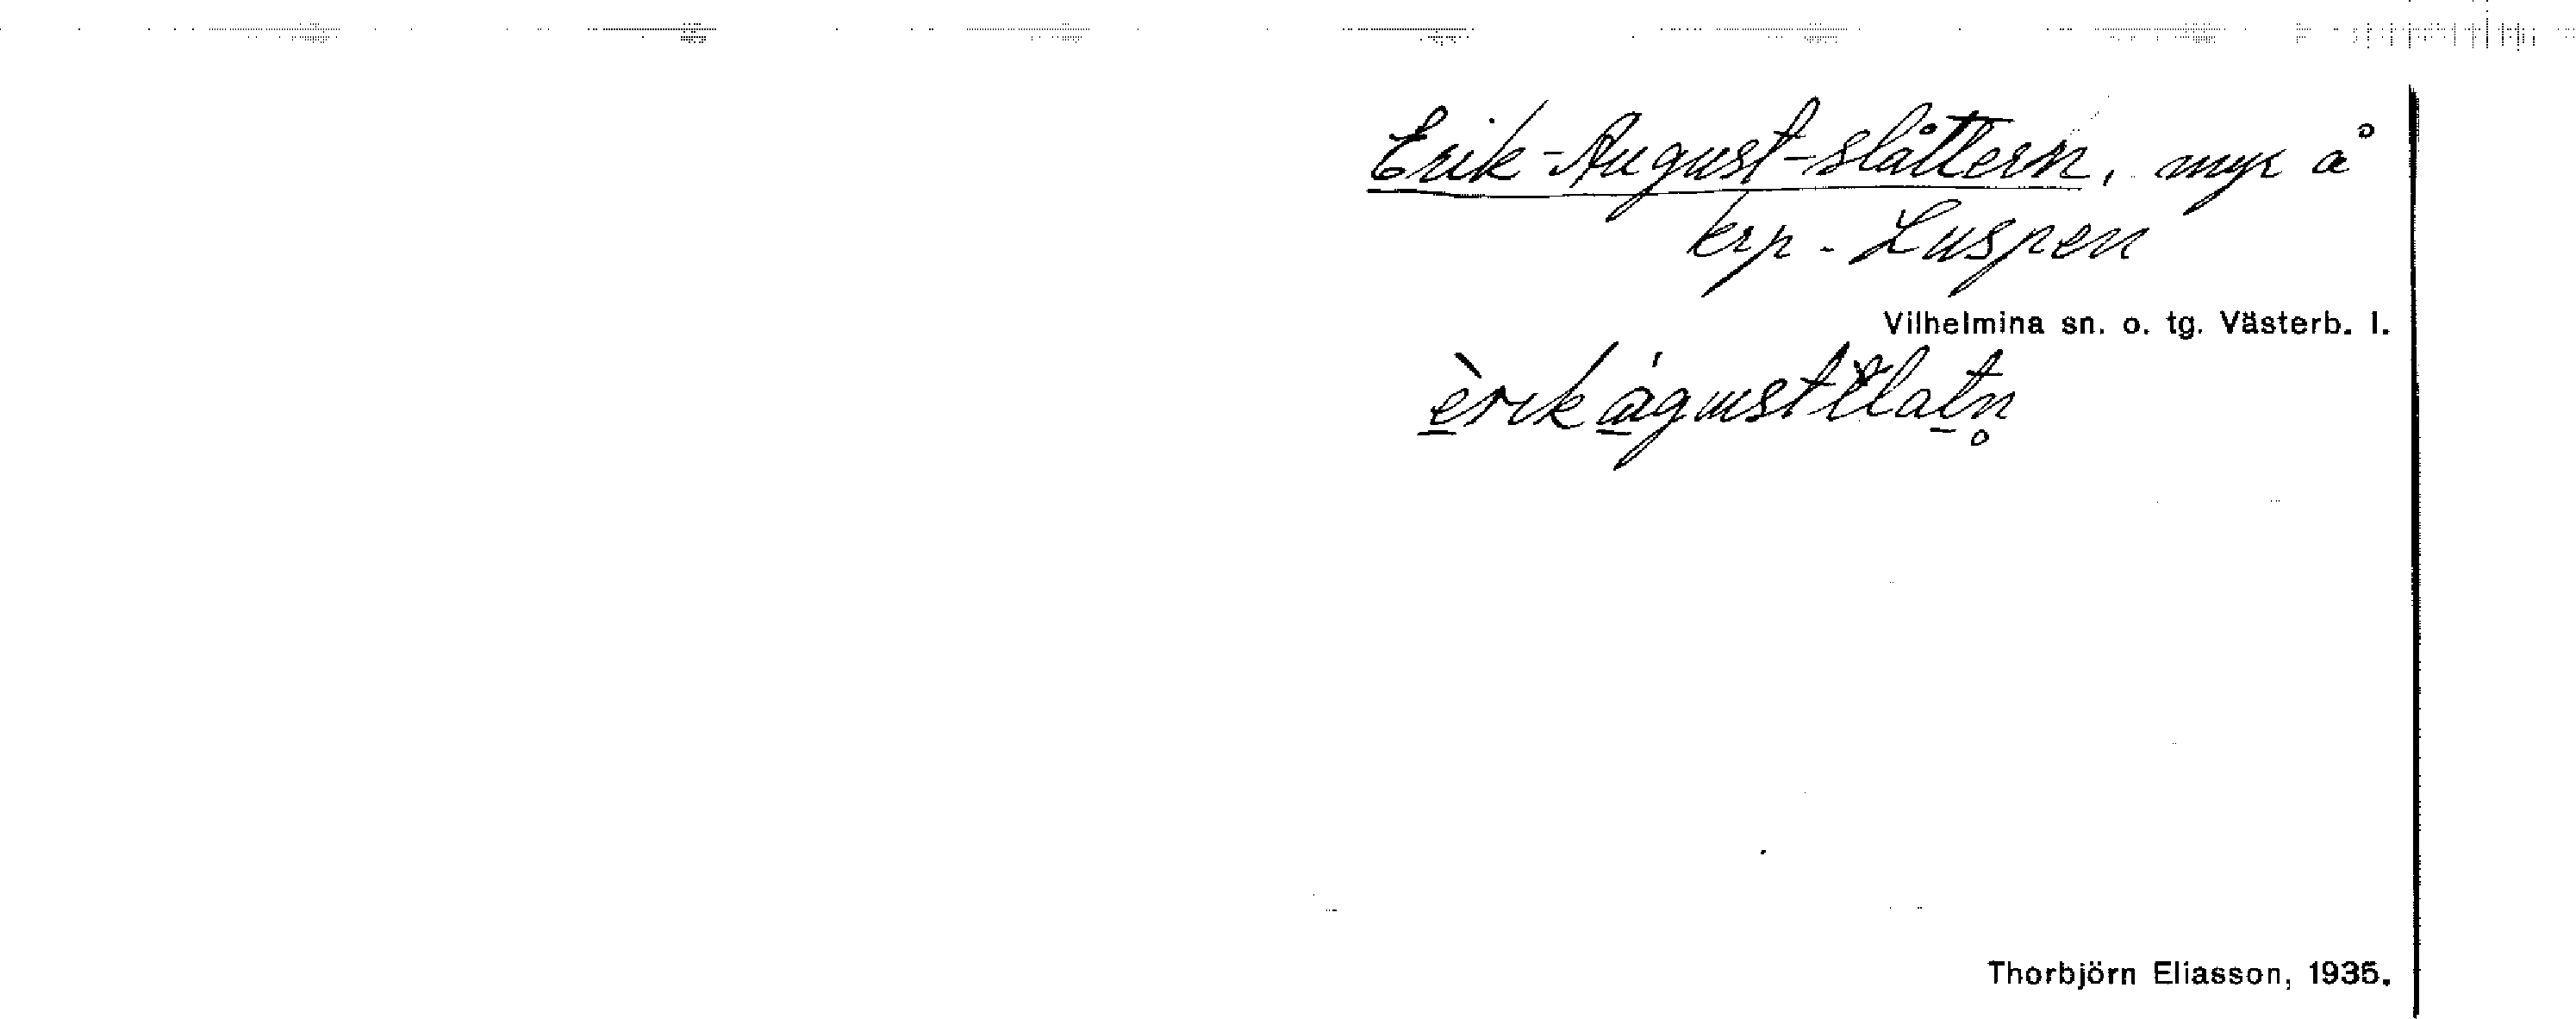 Erik-August-slåttern, myr å
krp. Luspen
Vilhelmina sn. o. tg. Västerb. l.
Thorbjörn Eliasson, 1935.